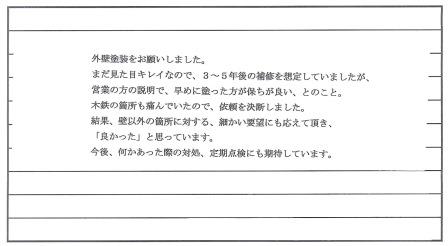 外壁塗装をお願いしました。
まだ見た目キレイなので、３～５年後の補修を想定していましたが、
営業の方の説明で、早めに塗った方が保ちが良い、とのこと。
木鉄の箇所も痛んでいたので、依頼を決断しました。
結果、壁以外の箇所に対する、細かい要望にも応えて頂き、
「良かった」と思っています。
今後、何かあった際の対処、定期点検にも期待しています。